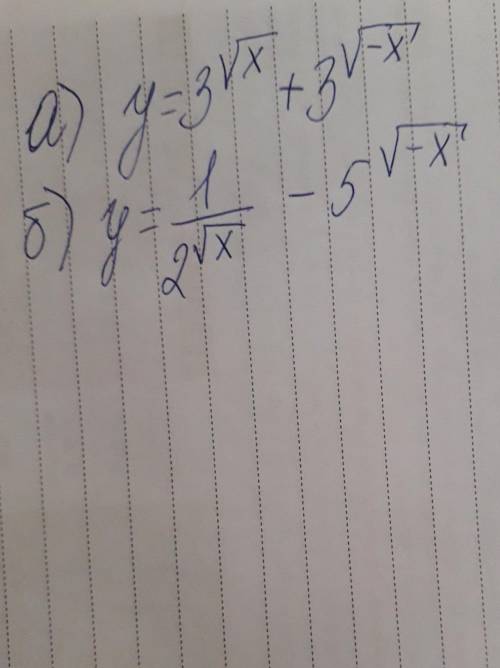 а) y=3^√x + 3^√-x
б) y= 1/2^√x - 5^√-x